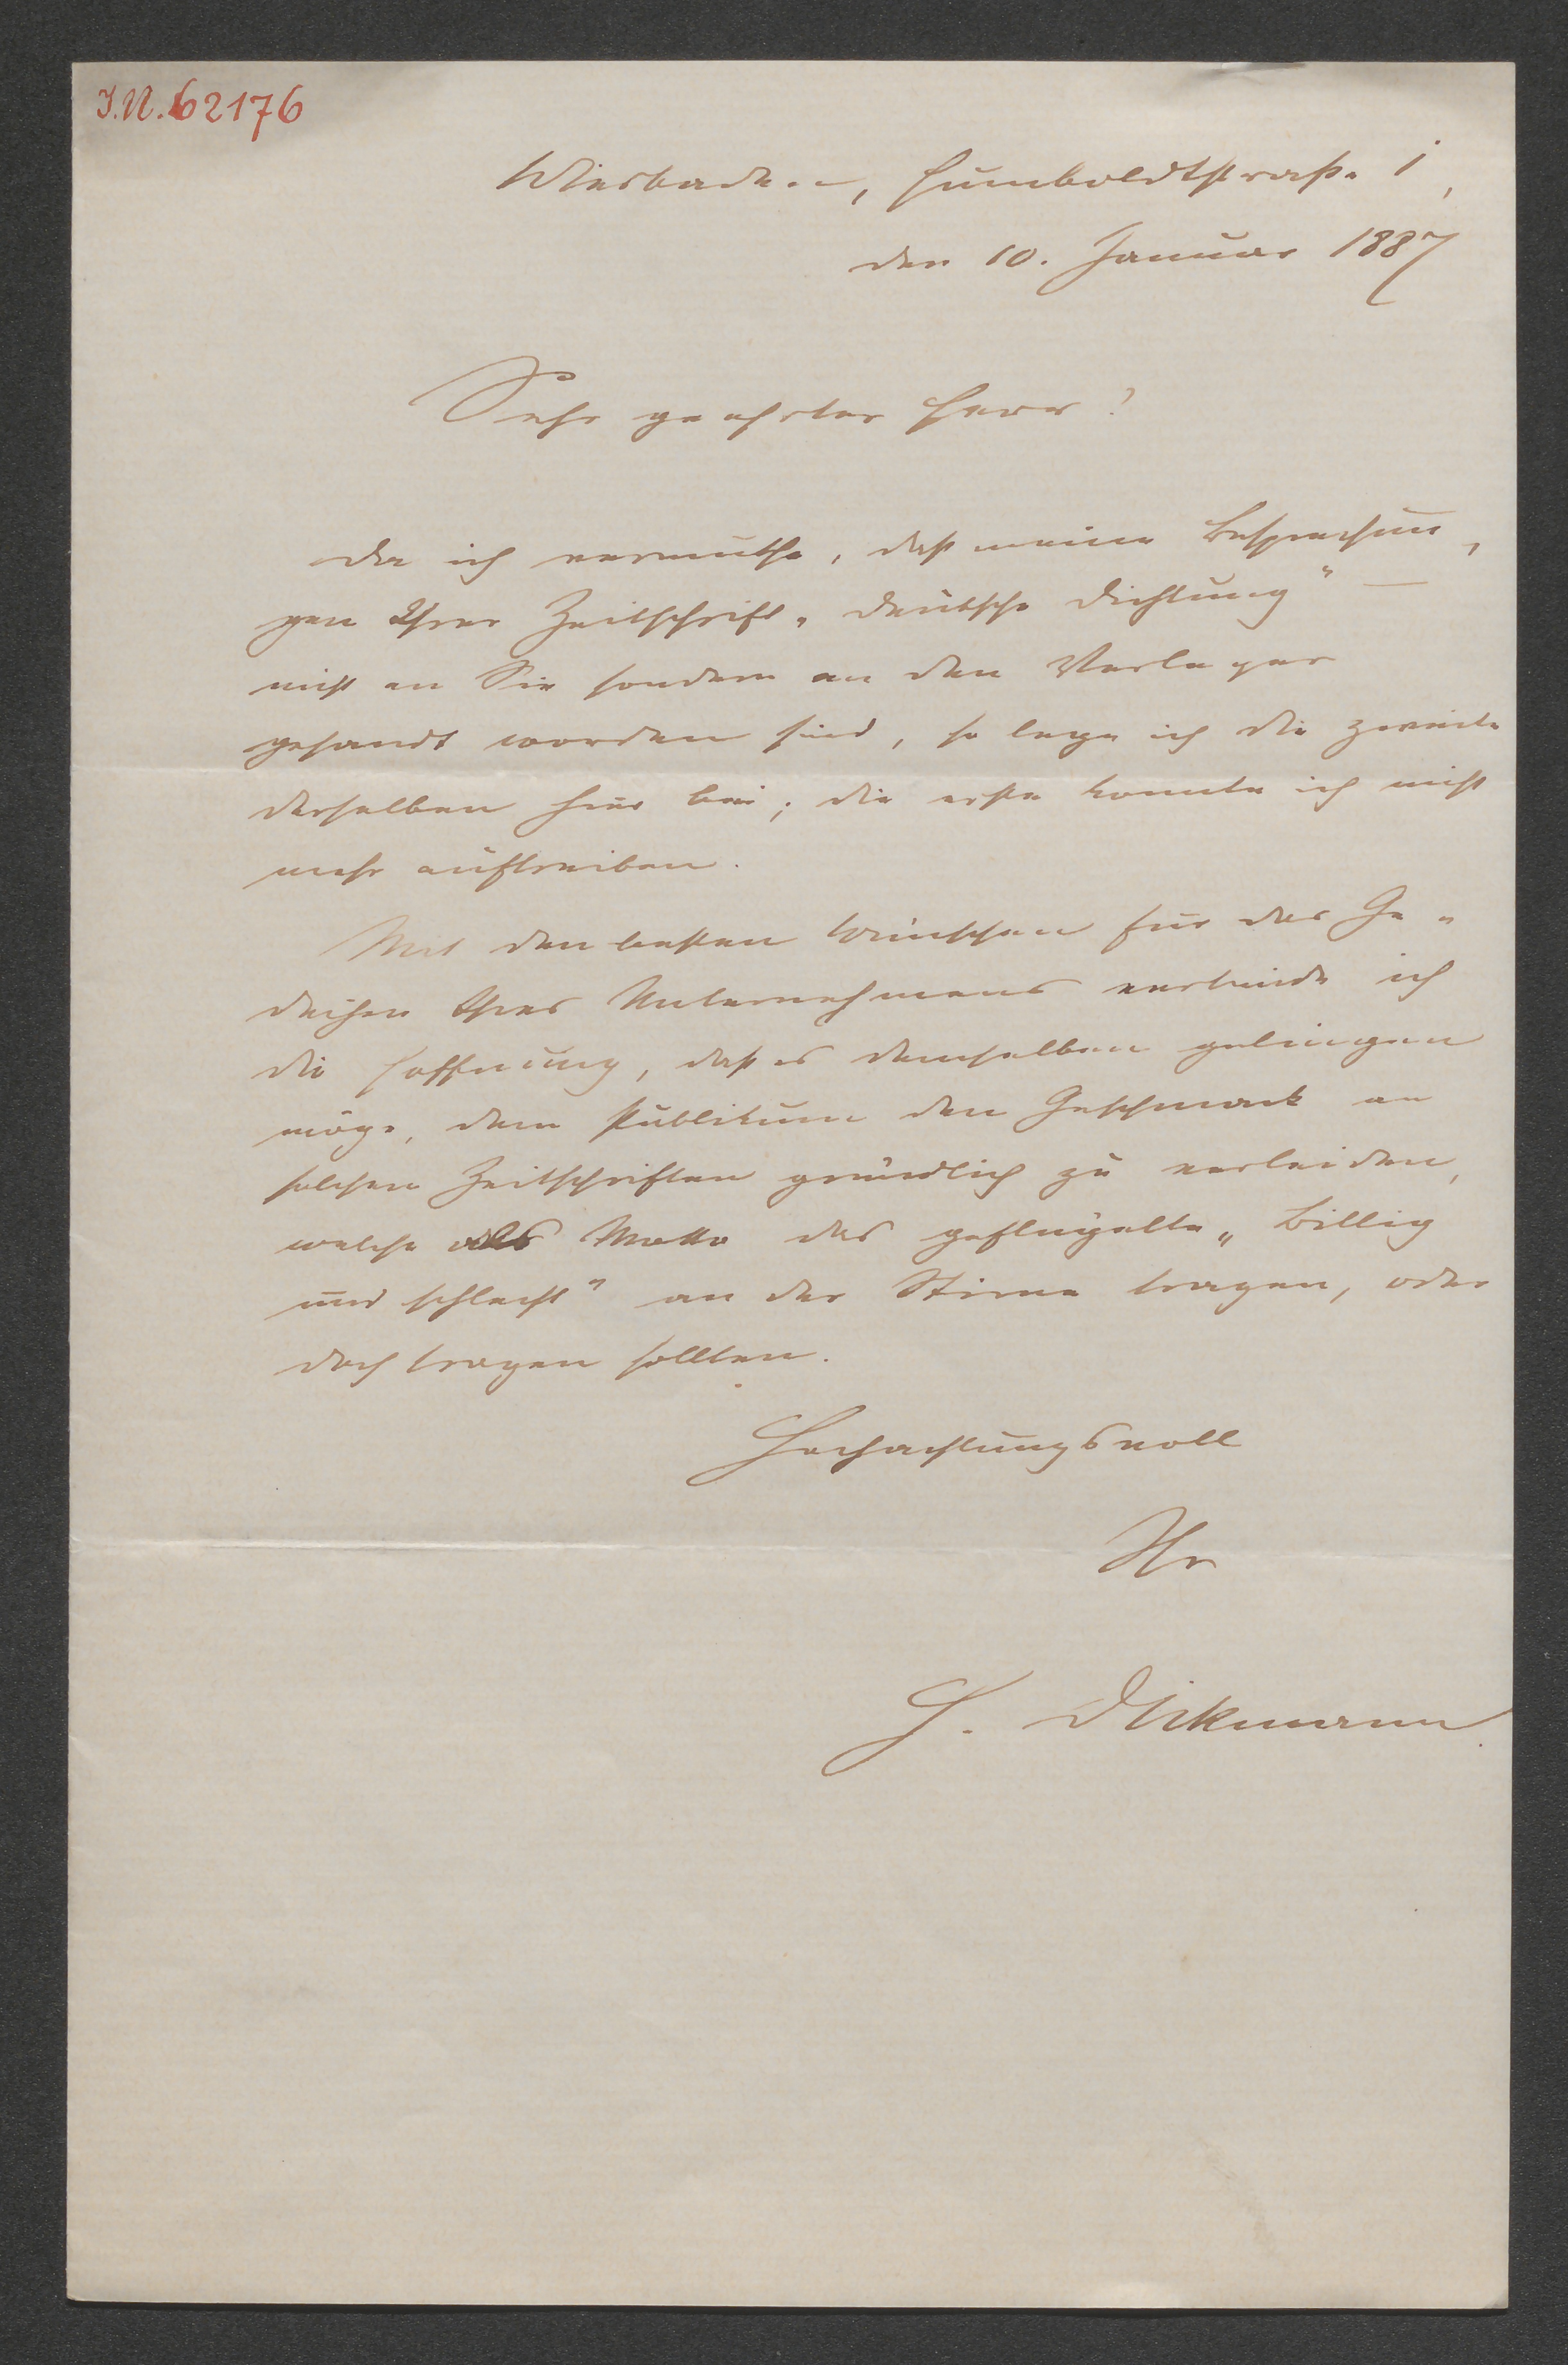 J.N. 62176
Wiesbaden, Humboldtstraße 1,
den 10. Januar 1887
Sehr geehrter Herr!
Da ich vermuthe, daß meine Besprechun-
gen Ihrer Zeitschrift „Deutsche Dichtung" —
nicht an Sie sondern an den Verleger
gesandt worden sind, so lege ich die zweite
derselben hier bei; die erste konnte ich nicht
mehr auftreiben.
Mit den besten Wünschen für das Ge-
deihen Ihres Unternehmens verbinde ich
die Hoffnung, daß es demselben gelingen
möge, dem Publikum den Geschmack an
solchen Zeitschriften gründlich zu verleiden,
welche als Motto das geflügelte „Billig
und schlecht" an der Stirne tragen, oder
doch tragen sollten.
Hochachtungsvoll
Ihr
Dickmann